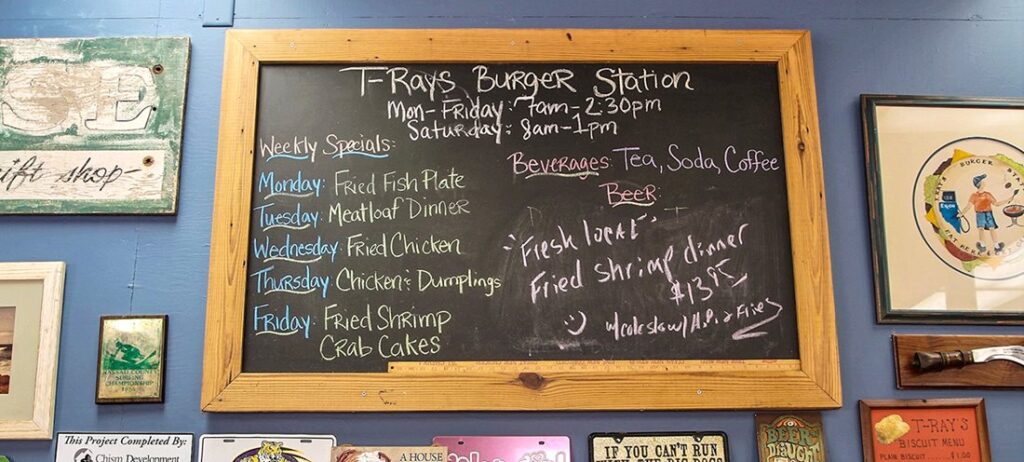 SE
ift shop-
T-Rays Burger Station
Mon-Friday: 7am-2:30pm
Saturday: 8am-1pm
Weekly Specials:
Monday: Fried Fish Plate
Tuesday: Meatloaf Dinner
Wednesday: Fried Chicken
Thursday: Chicken & Dumplings
Friday: Fried Shrimp
Crab Cakes
Beverages: Tea, Soda, Coffee
Beer:
"Fresh local"
Fried shrimp dinner
$13.95
w/coleslaw/H.P. & Fries
BURGER
NASSAU COUNTY
SURFING
CHAMPIONSHIP
This Project Completed By:
Chism Development
A HOUSE
IF YOU CAN'T RUN
WITH THE BIG DOGS
BEER
DRAUGHT
T-RAY'S
BISCUIT MENU
PLAIN BISCUIT $1.00